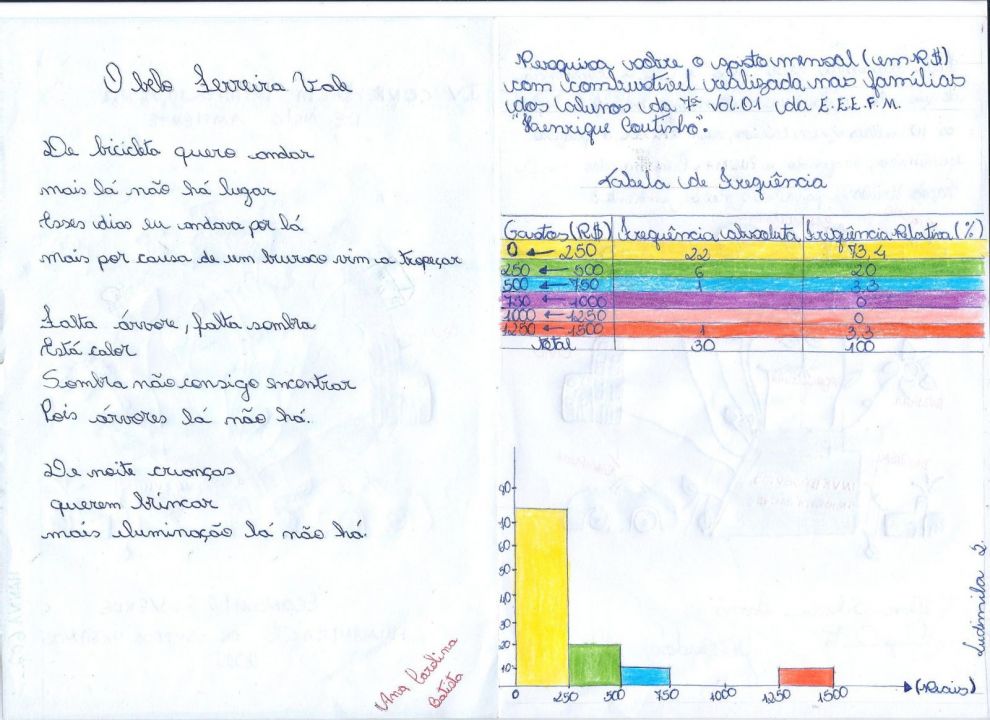 O belo Ferreira Vale
De bicicleta quero andar
mais lá não há lugar
Esses dias eu andava por lá
mais por causa de um buraco vim a tropeçar
Falta árvore, falta sombra
Está calor
Sombra não consigo encontrar
Pois árvores lá não há.
De noite crianças
querem brincar
mais iluminação lá não há.
Ana Carolina
Batista
Pesquisa sobre o gasto mensal (em R$)
com combustível realizada nas famílias
dos alunos da 7ª Vol.01 da E.E.E.F.M.
"Henrique Coutinho".
Tabela de Frequência
Gastos (R$) Frequência absoluta Frequência Relativa (%)
0 250 22 73,4
250 500 6 20
500 750 1 3,3
750 1000 0
1000 1250 0
1250 1500 1 3,3
Total 30 100
90
60
50
40
30
20
10
0 250 500 750 1000 1250 1500 (reais)
Ludimila